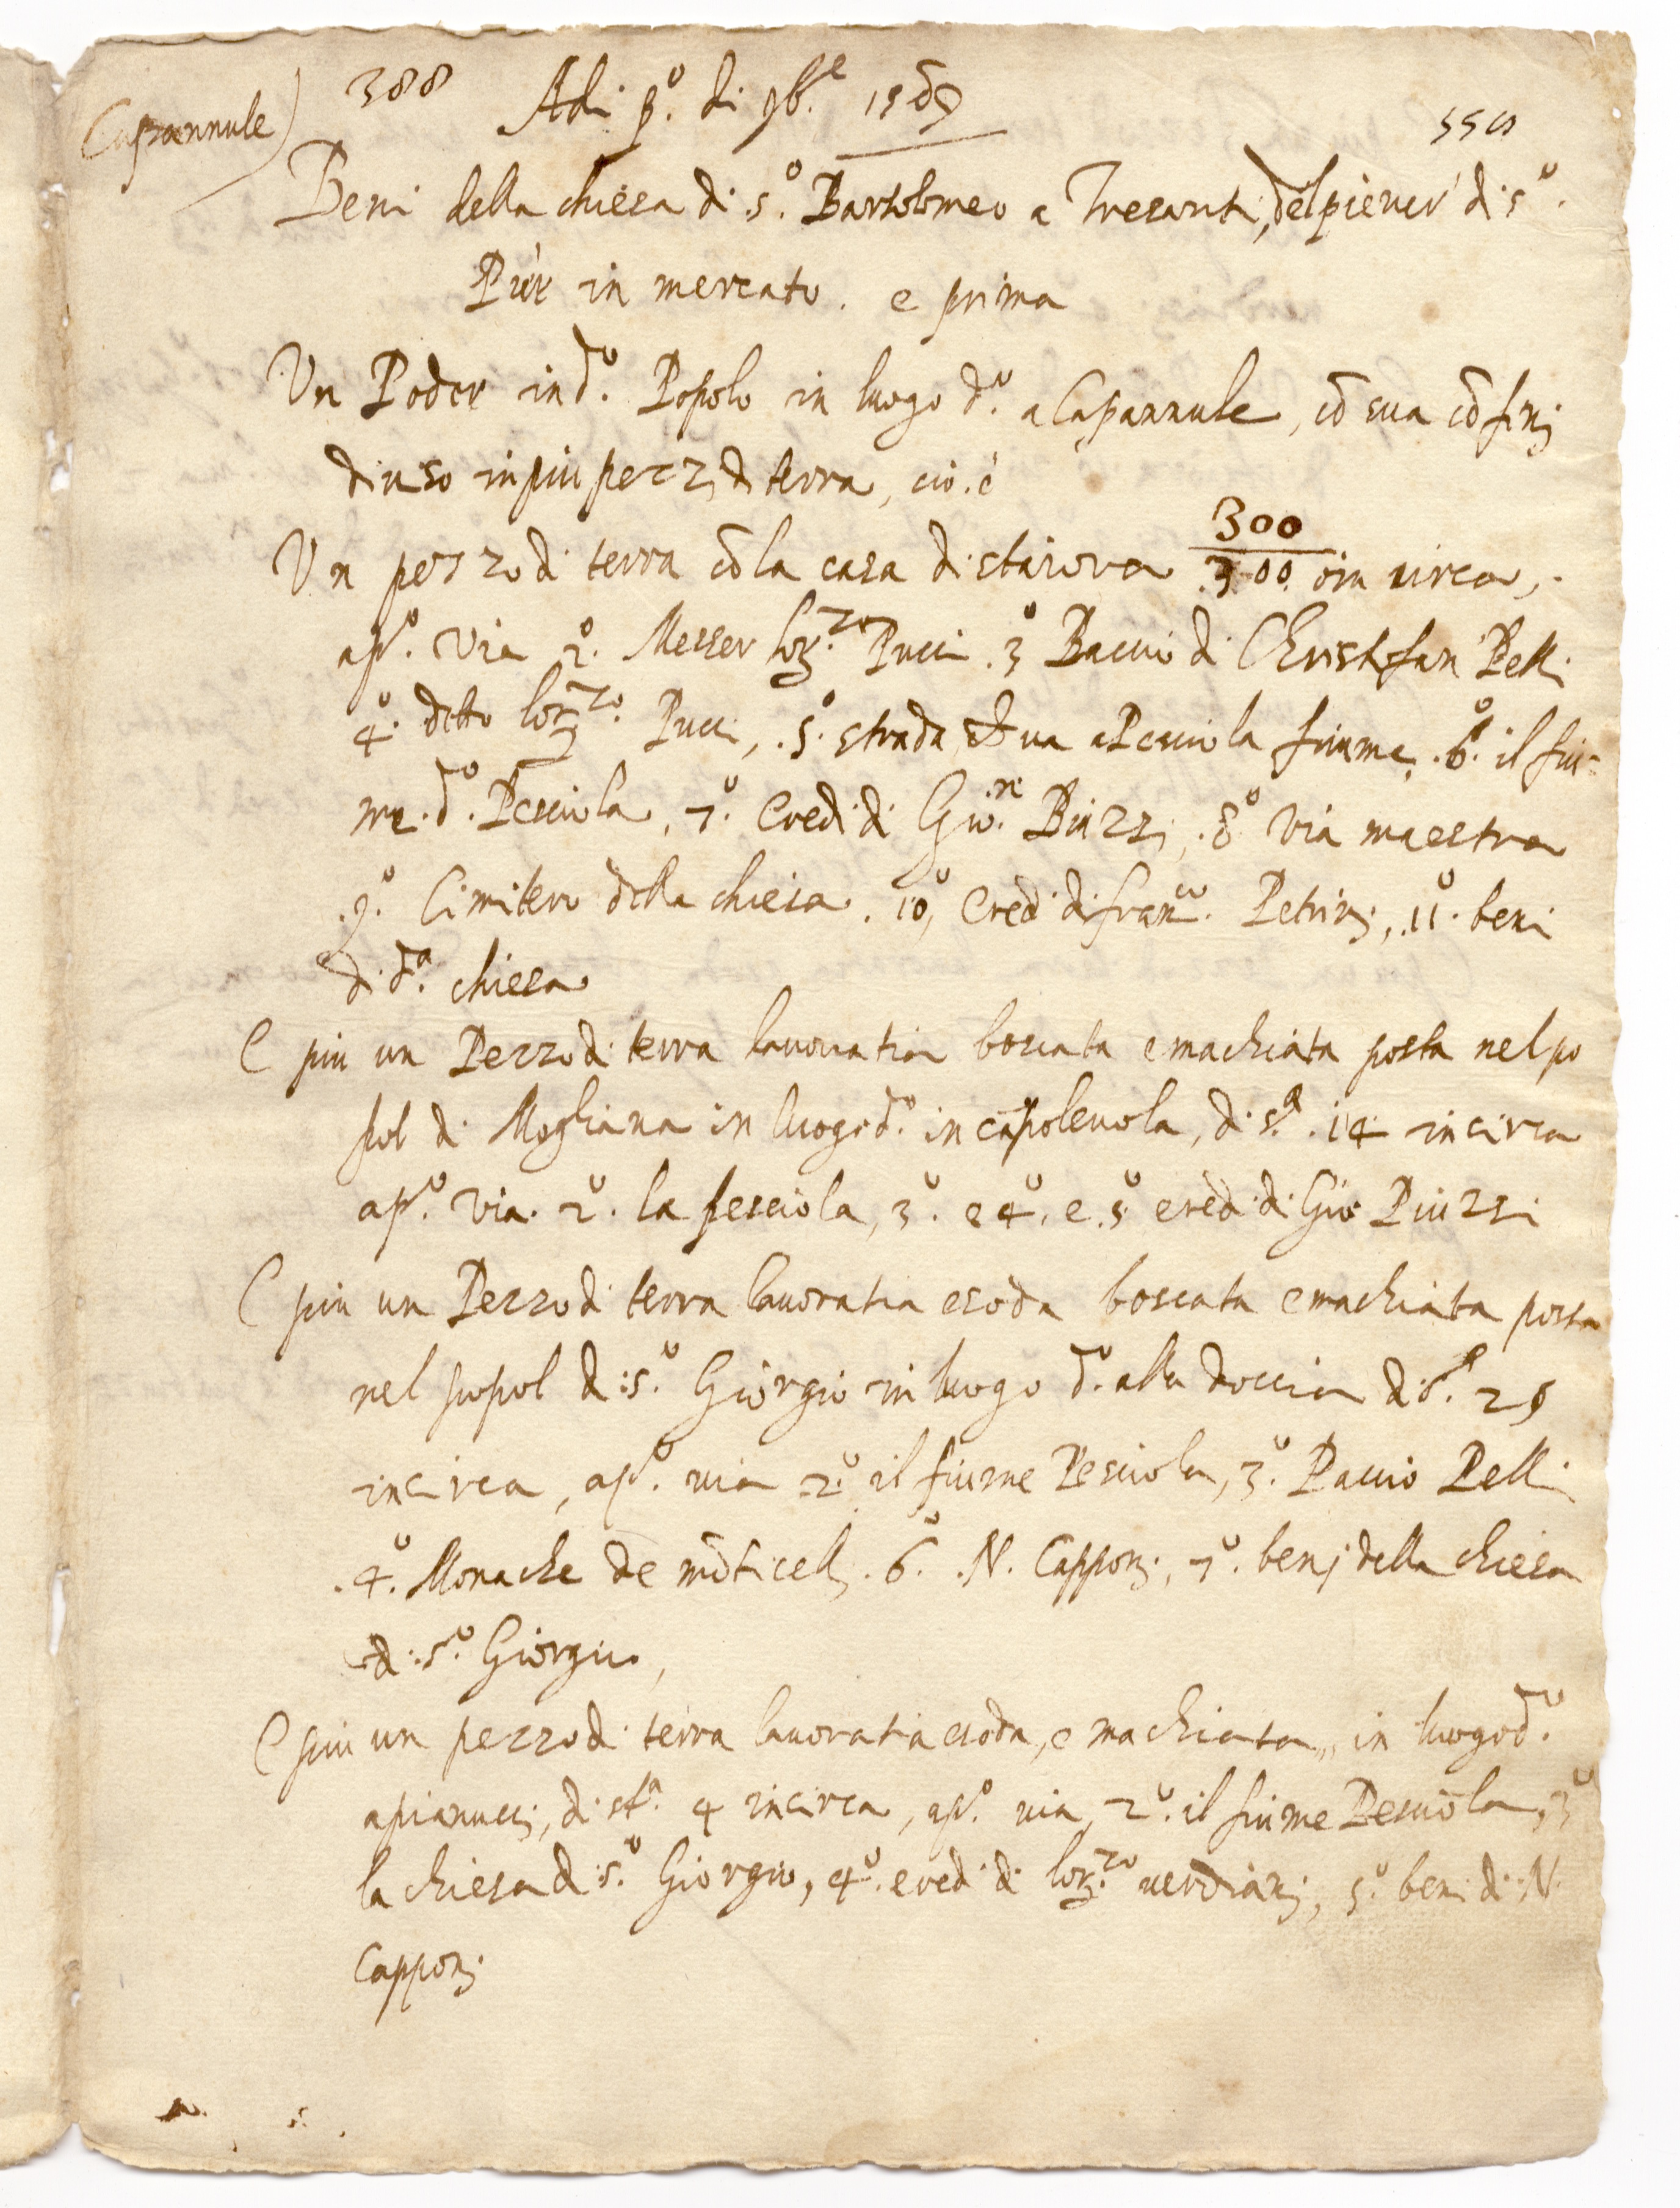 Capannule)
388 Adi p.º di 9b.e 1569
Beni della chiesa di .s.º Bartolomeo a Tresanti, del pieuer' di s.º
Pier in mercato. e prima
Un Poder in d.º Popolo in luogo d.º a Capannule, cō sua cōfinj
diuiso in piu pezzi di terra, cio.è
300
Un pezzo di terra cō la casa di staiora 300 in circa,
ap.º via 2.º Messer lor.zo Pucci .3º Baccio di Christofan Pelli
4.º detto lor.zo Pucci, .5.º strada che ua a Pesciola fiume, .6.º il fiu=
me .d.º Pesciola, 7.º eredi di Gio.ni Biuzzi, .8º via maestra
.9.º Cimitero della chiesa .10º, eredi di fran.co Petrinj, .11.º beni
di d.a chiesa
E piu un Pezzo di terra lauoratia boscata e machiata posta nel po
pol di Mogliana in luogo d.º in capoleuola, di s.a .14 in circa
ap.º via. 2.º la pesciola, 3.º e 4.º e .5º eredi di Gio: Piuzzi
E piu un Pezzo di terra lauoratia e soda boscata e machiata posta
nel popol di .s.º Giorgio in luogo d.º alla doccia di s.a 25
incirca, ap.º uia 2.º il fiume Pesciola, 3.º Baccio Pelli
.4.º Monache de mōticellj .6.º .N. Capponj, 7.º benj della chiesa
di .s.º Giorgio,
E piu un pezzo di terra lauoratia e soda, e machiata, in luogo d.º
a pianuccj, di st.a 4 incirca, ap.º uia, 2.º il fiume Pesciola, 3º
la chiesa di .s.º Giorgio, 4.º eredi di lor.zo uerdianj, 5.º beni di .N.
Capponj